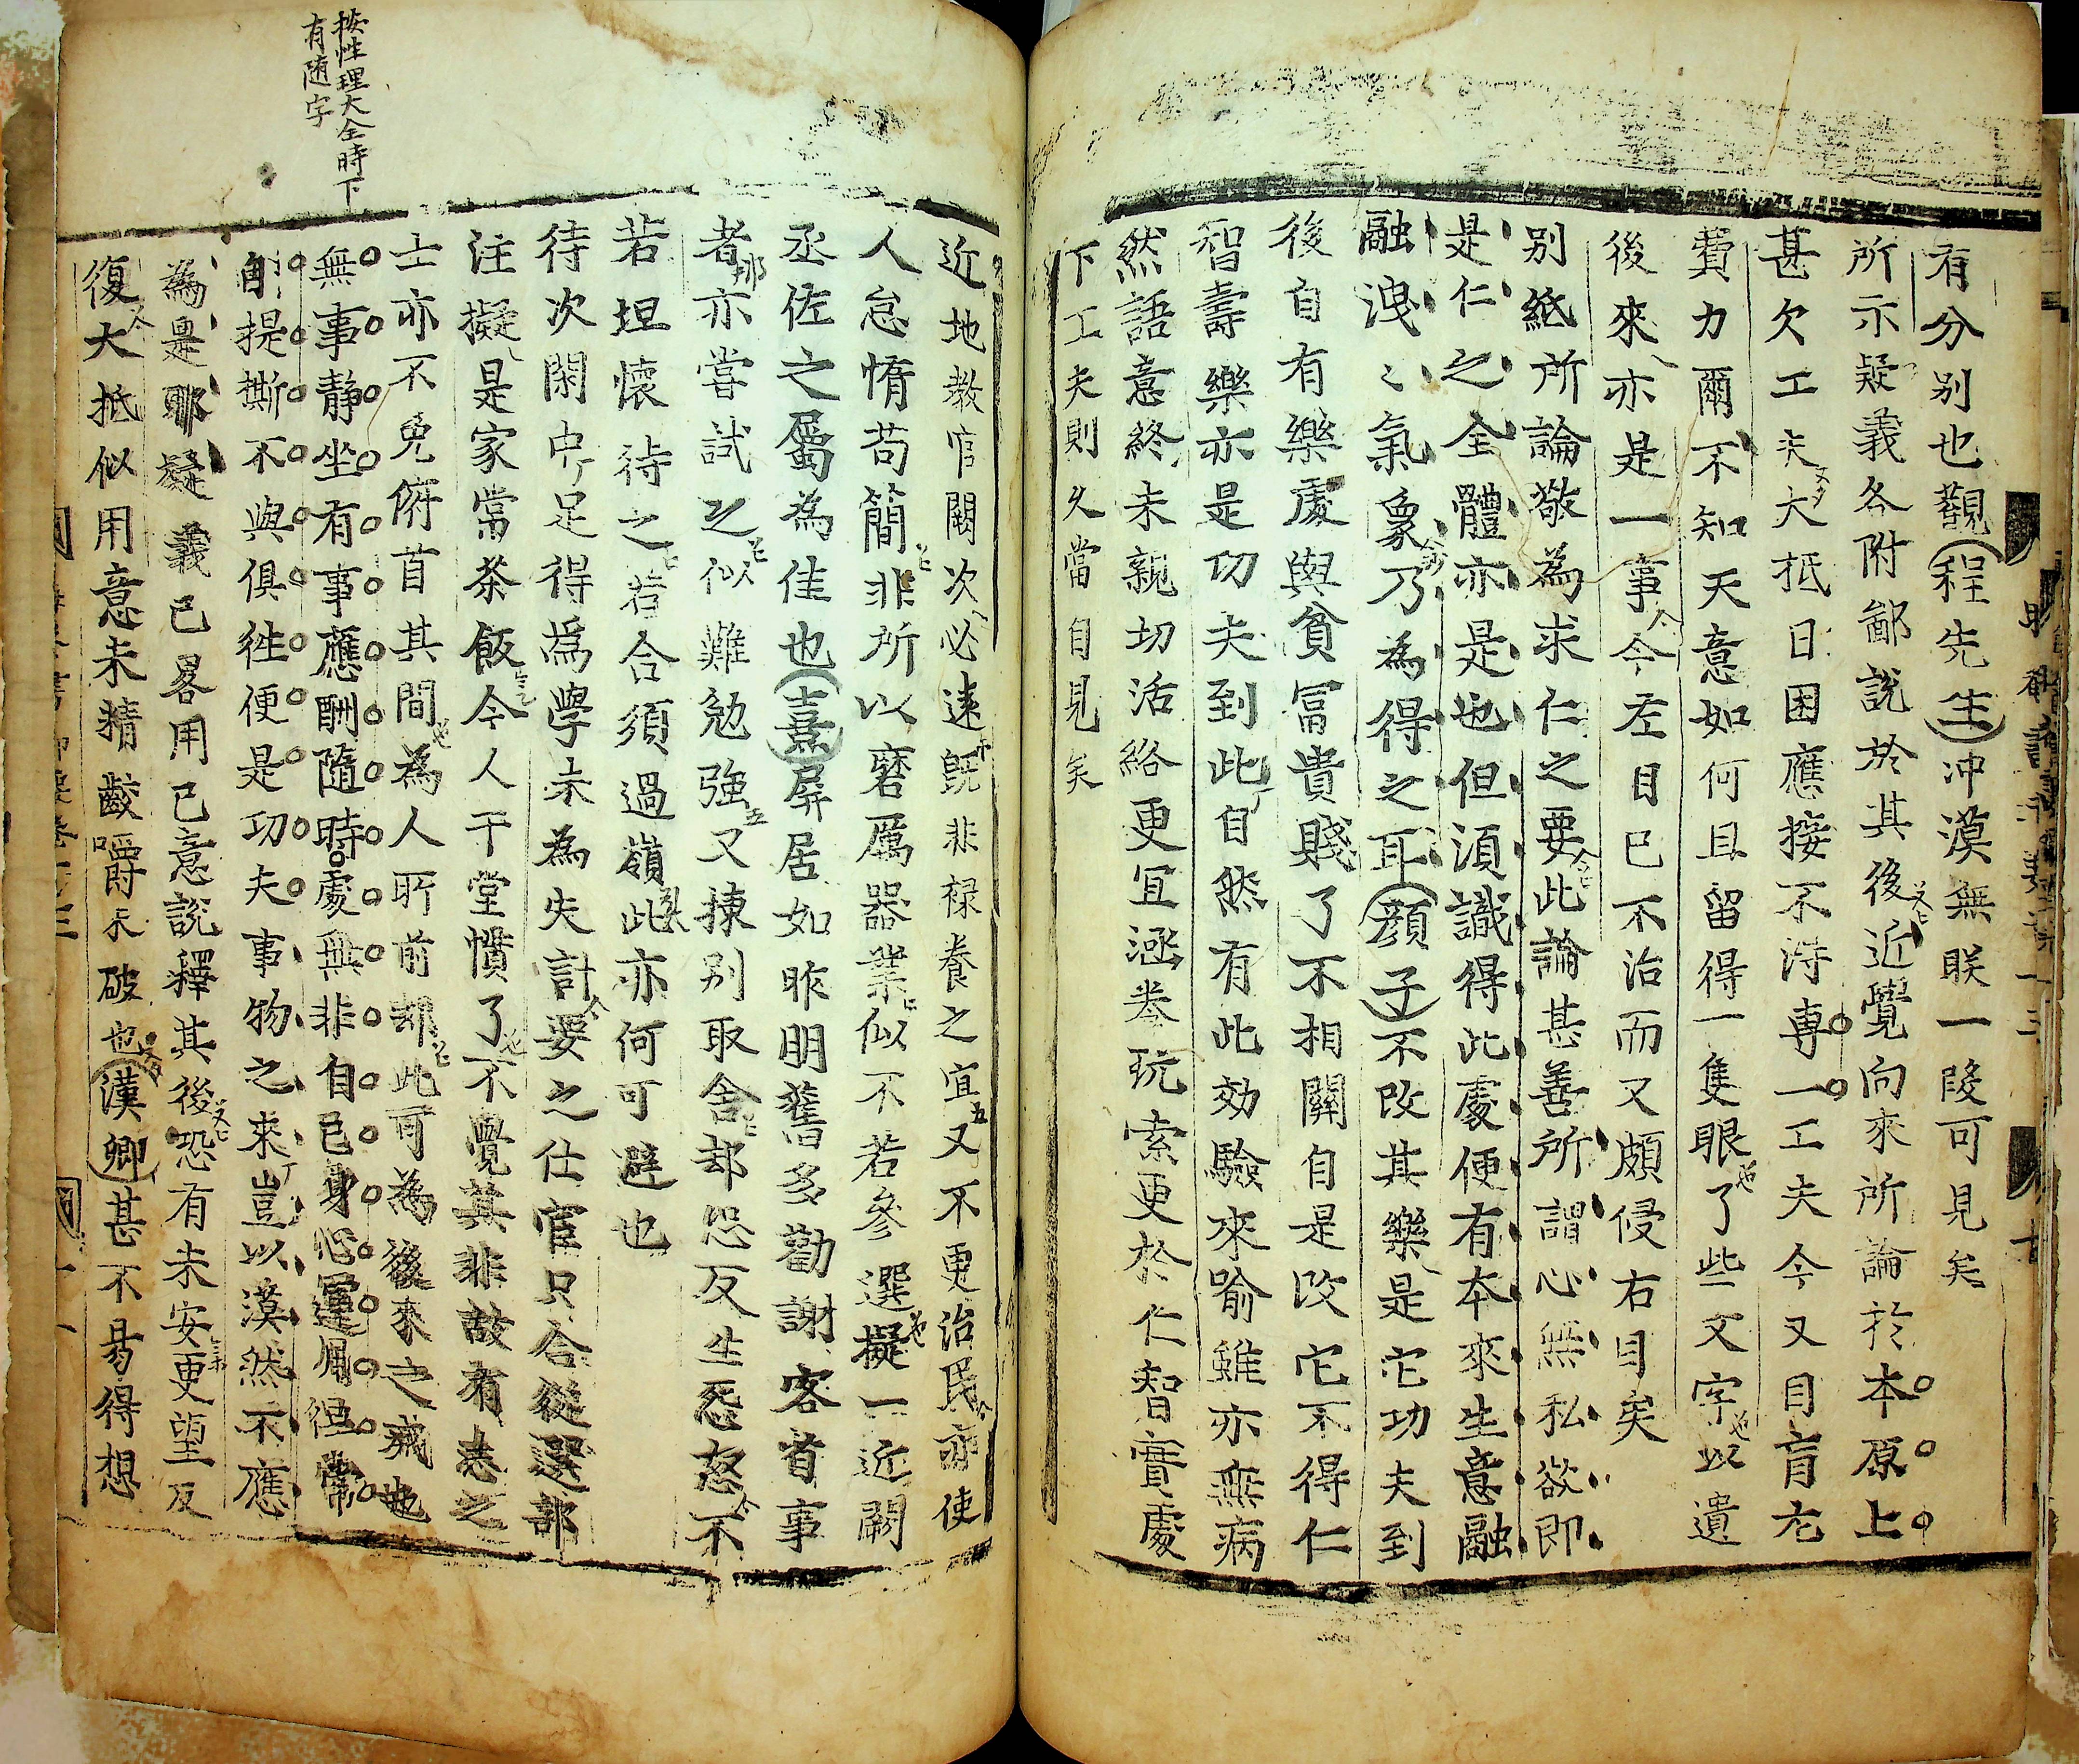 有分别也觀程先生冲漠無朕一段可見矣
所示疑義各附鄙說於其後近覺向來所論於本原上
甚欠工夫大抵日困應接不得專一工夫今又目盲尤
費力爾不知天意如何且留得一隻眼了些文字以遺
後來亦是一事今左目已不治而又頗侵右目矣
别紙所論敬為求仁之要此論甚善所謂心無私欲即
是仁之全體亦是也但須識得此處便有本來生意融
融洩〻氣象乃為得之耳顔子不改其樂是它功夫到
後自有樂處與貧冨貴賤了不相關自是改它不得仁
智壽樂亦是功夫到此自然有此効驗來喻雖亦無病
然語意終未親切活絡更冝涵養玩索更於仁智實處
下工夫則久當自見矣
近地教官闕次必遠旣非禄養之宜又不更治民亦使
人怠惰苟簡非所以磨厲器業似不若參選擬一近闕
丞佐之屬為佳也熹屏居如昨朋舊多勸謝客省事
者亦嘗試之似難勉強又揀别取舍却恐反生怨怒不
若坦懷待之若合須過嶺此亦何可避也
待次閑中足得爲學未為失計要之仕宦只合從選部
注擬是家常茶飯今人干堂慣了不覺其非故有志之
士亦不免俯首其間為人所前却此可為後來之戒也
無事静坐有事應酬隨時處無非自己身心運用但常
自提撕不與俱徃便是功夫事物之來豈以漠然不應
為是耶疑義已畧用己意說釋其後恐有未安更望反
復大抵似用意未精齩嚼未破也漢卿甚不易得想
按性理大全時下
有随字